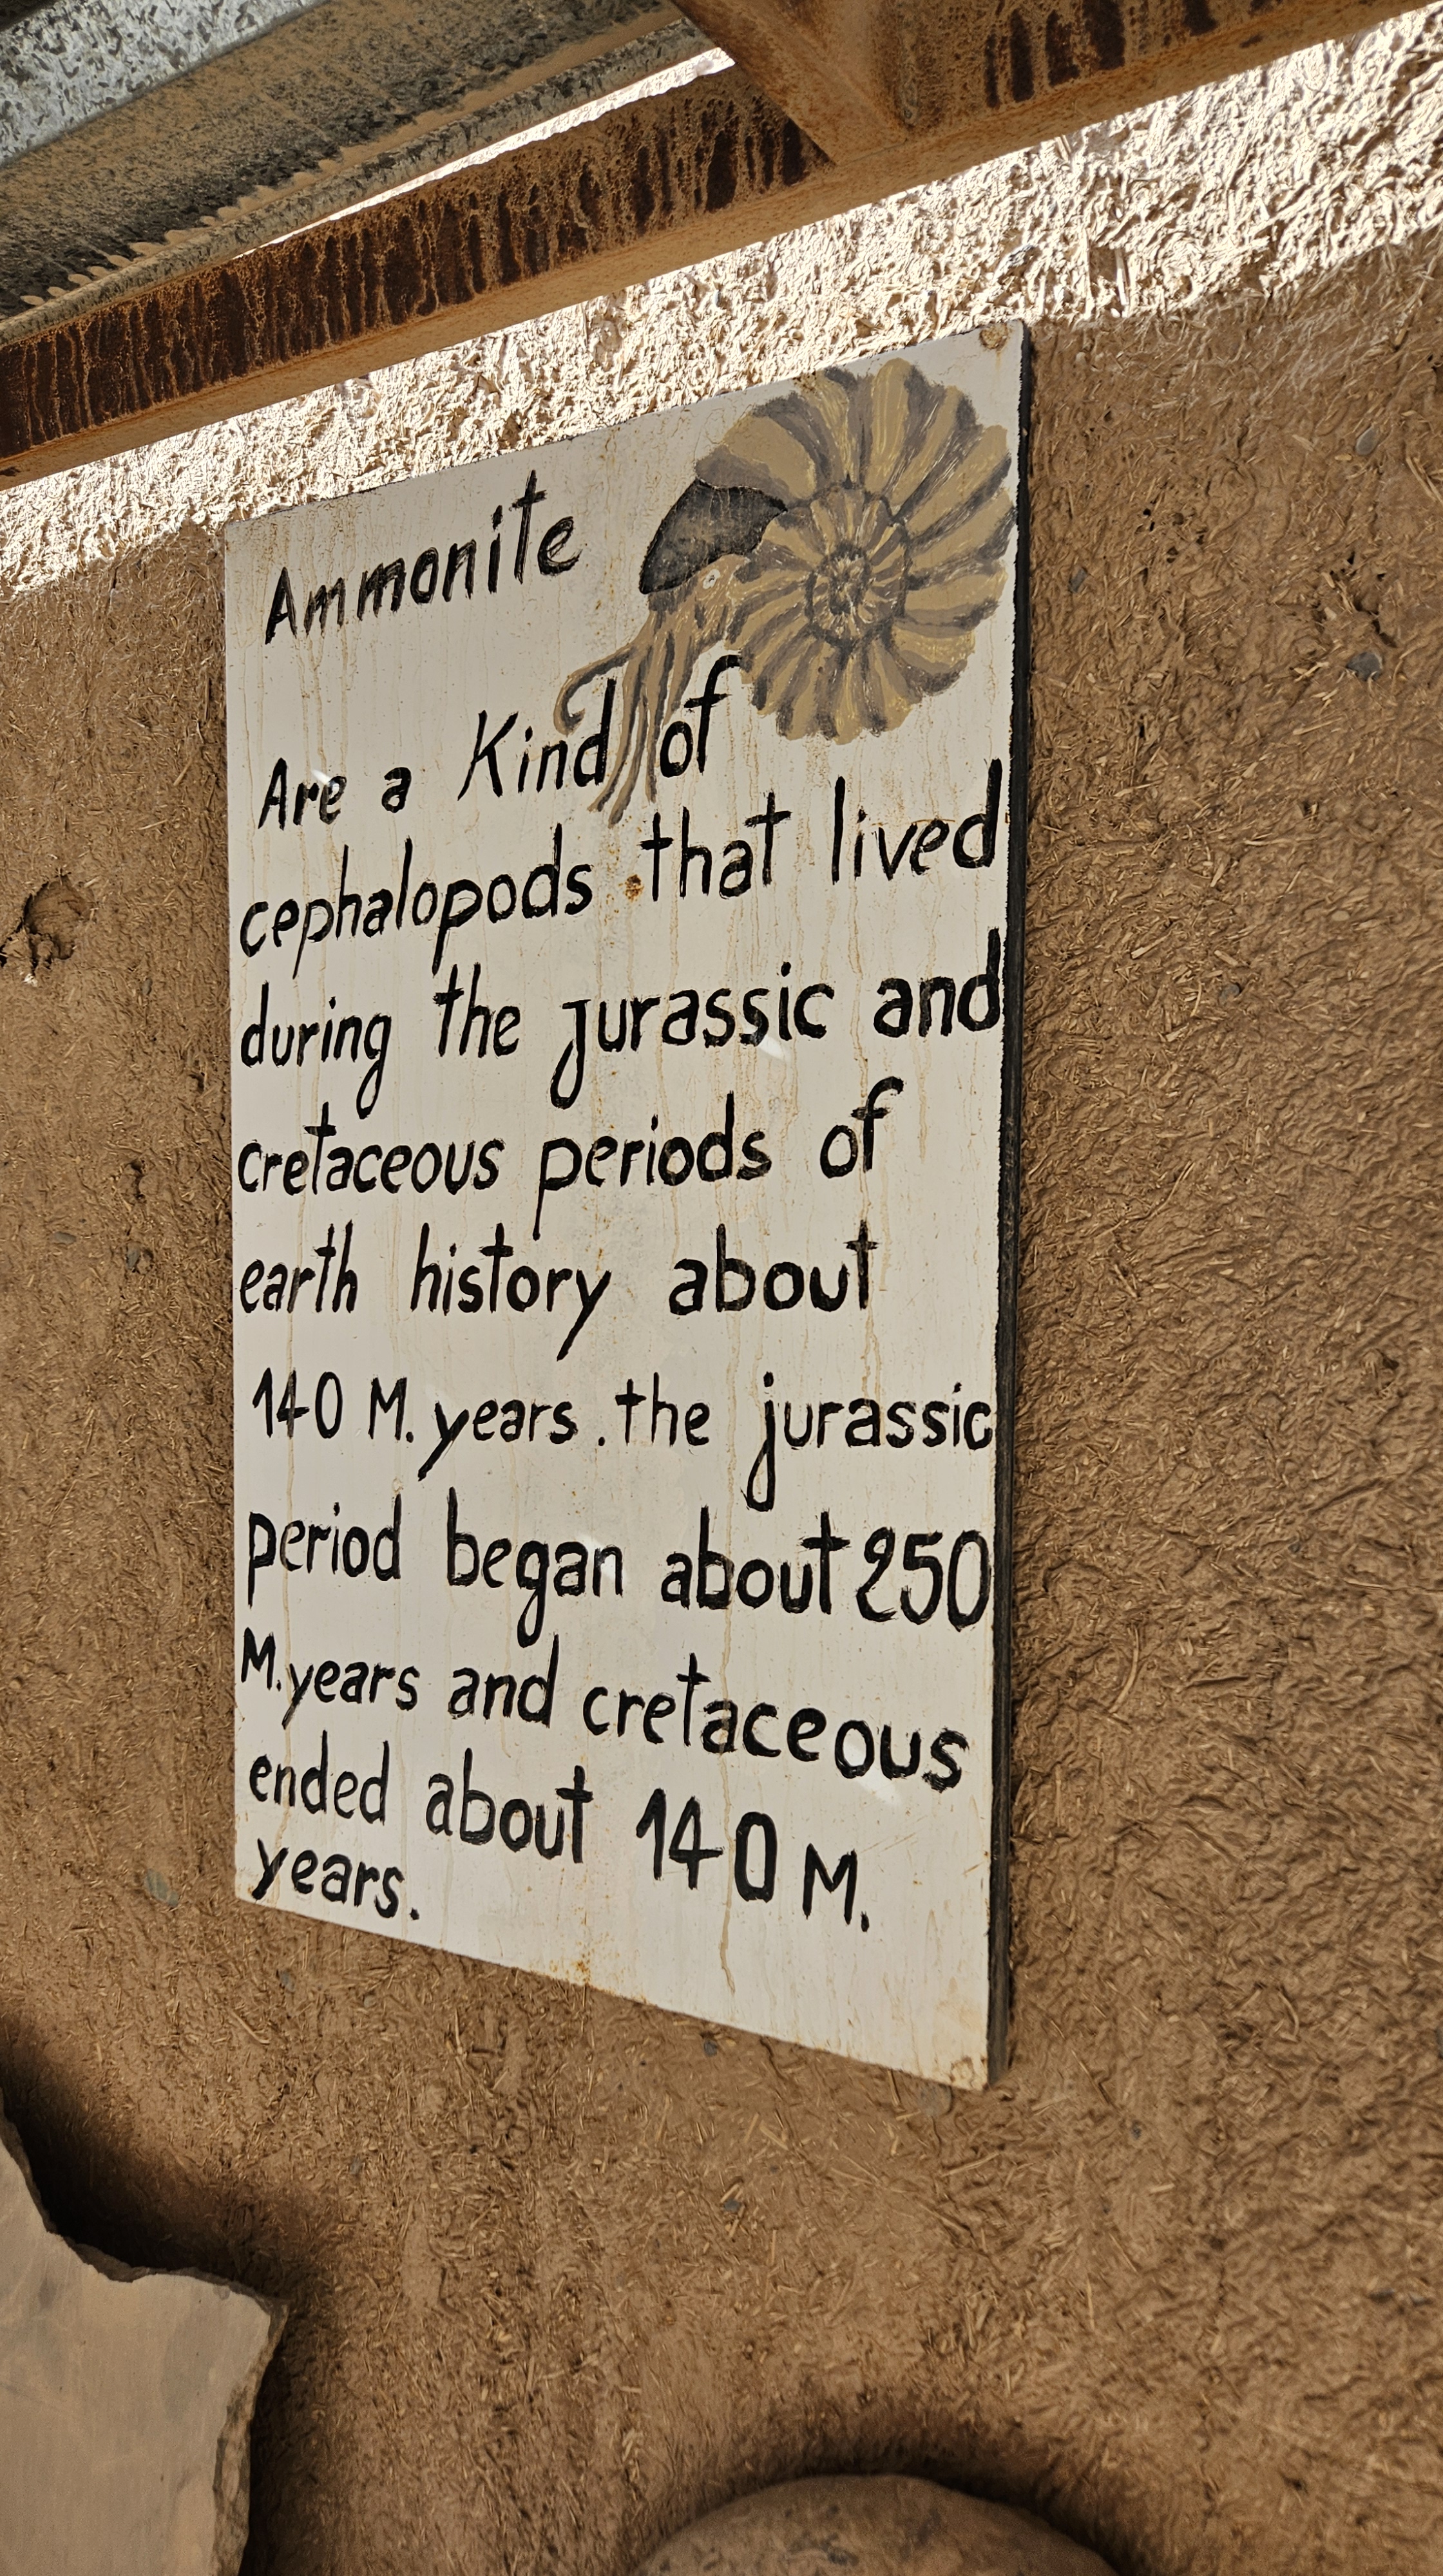 Ammonite
Are a Kind of
cephalopods that lived
during the jurassic and
cretaceous periods of
earth history about
140 M. years. the jurassic
period began about 250
M. years and cretaceous
ended about 140 M.
years.